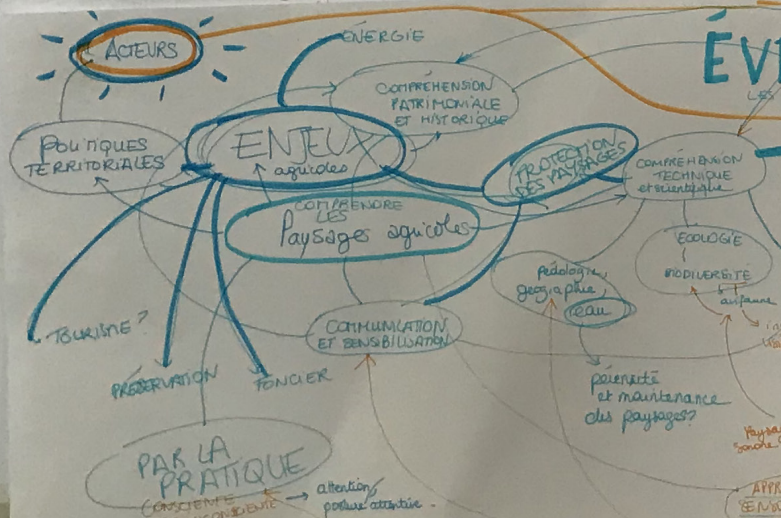 ACTEURS
ÉNERGIE
ÉV
LES
COMPRÉHENSION
PATRIMONIALE
ET HISTORIQUE
POLITIQUES
TERRITORIALES
ENJEUX
agricoles
PROTECTION
DES PAYSAGES
COMPRÉHENSION
TECHNIQUE
et scientifique
COMPRENDRE
LES
Paysages agricoles
ÉCOLOGIE
BIODIVERSITÉ
avifaune
pédologie,
géographie,
eau
TOURISME ?
COMMUNICATION
ET SENSIBILISATION
PRÉSERVATION
FONCIER
et maintenance
des paysages?
PAR LA
PRATIQUE
CONSCIENTE
attention,
posture attentive.
Paysa
sonore
APPR
SENS